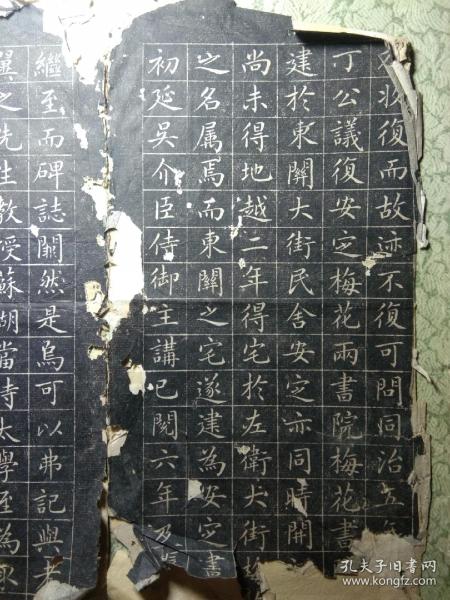 收復而故迹不復可問同治五年
丁公議復安定梅花兩書院梅花書
建於東關大街民舍安定亦同時開
尚未得地越二年得宅於左衛大街梅
之名屬焉而東關之宅遂建為安定書
初延吳介臣侍御主講已閱六年及
繼至而碑誌闕然是烏可以弗記與考
之先生教授蘇湖當時太學至為
孔夫子旧书网
www.kongfz.com